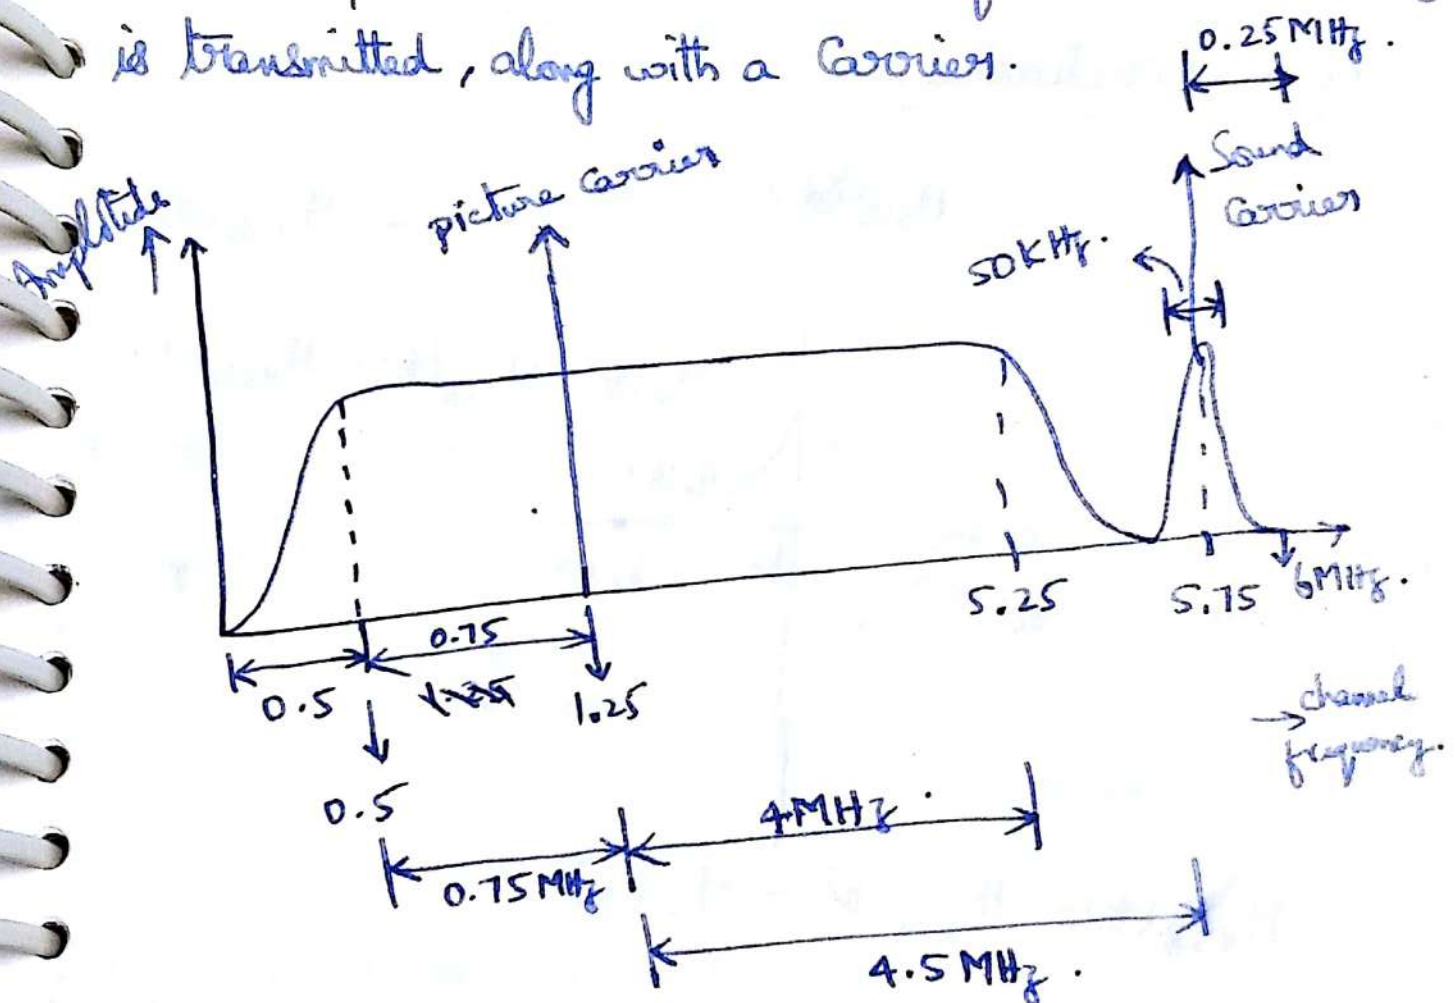 is transmitted, along with a Carrier.
0.25 MHz.
Sound
Carrier
picture carrier
50KHz.
5.25
5.75
6MHz.
0.5
0.75
1.25
channel
frequency.
0.5
0.75 MHz
4 MHz.
4.5 MHz.